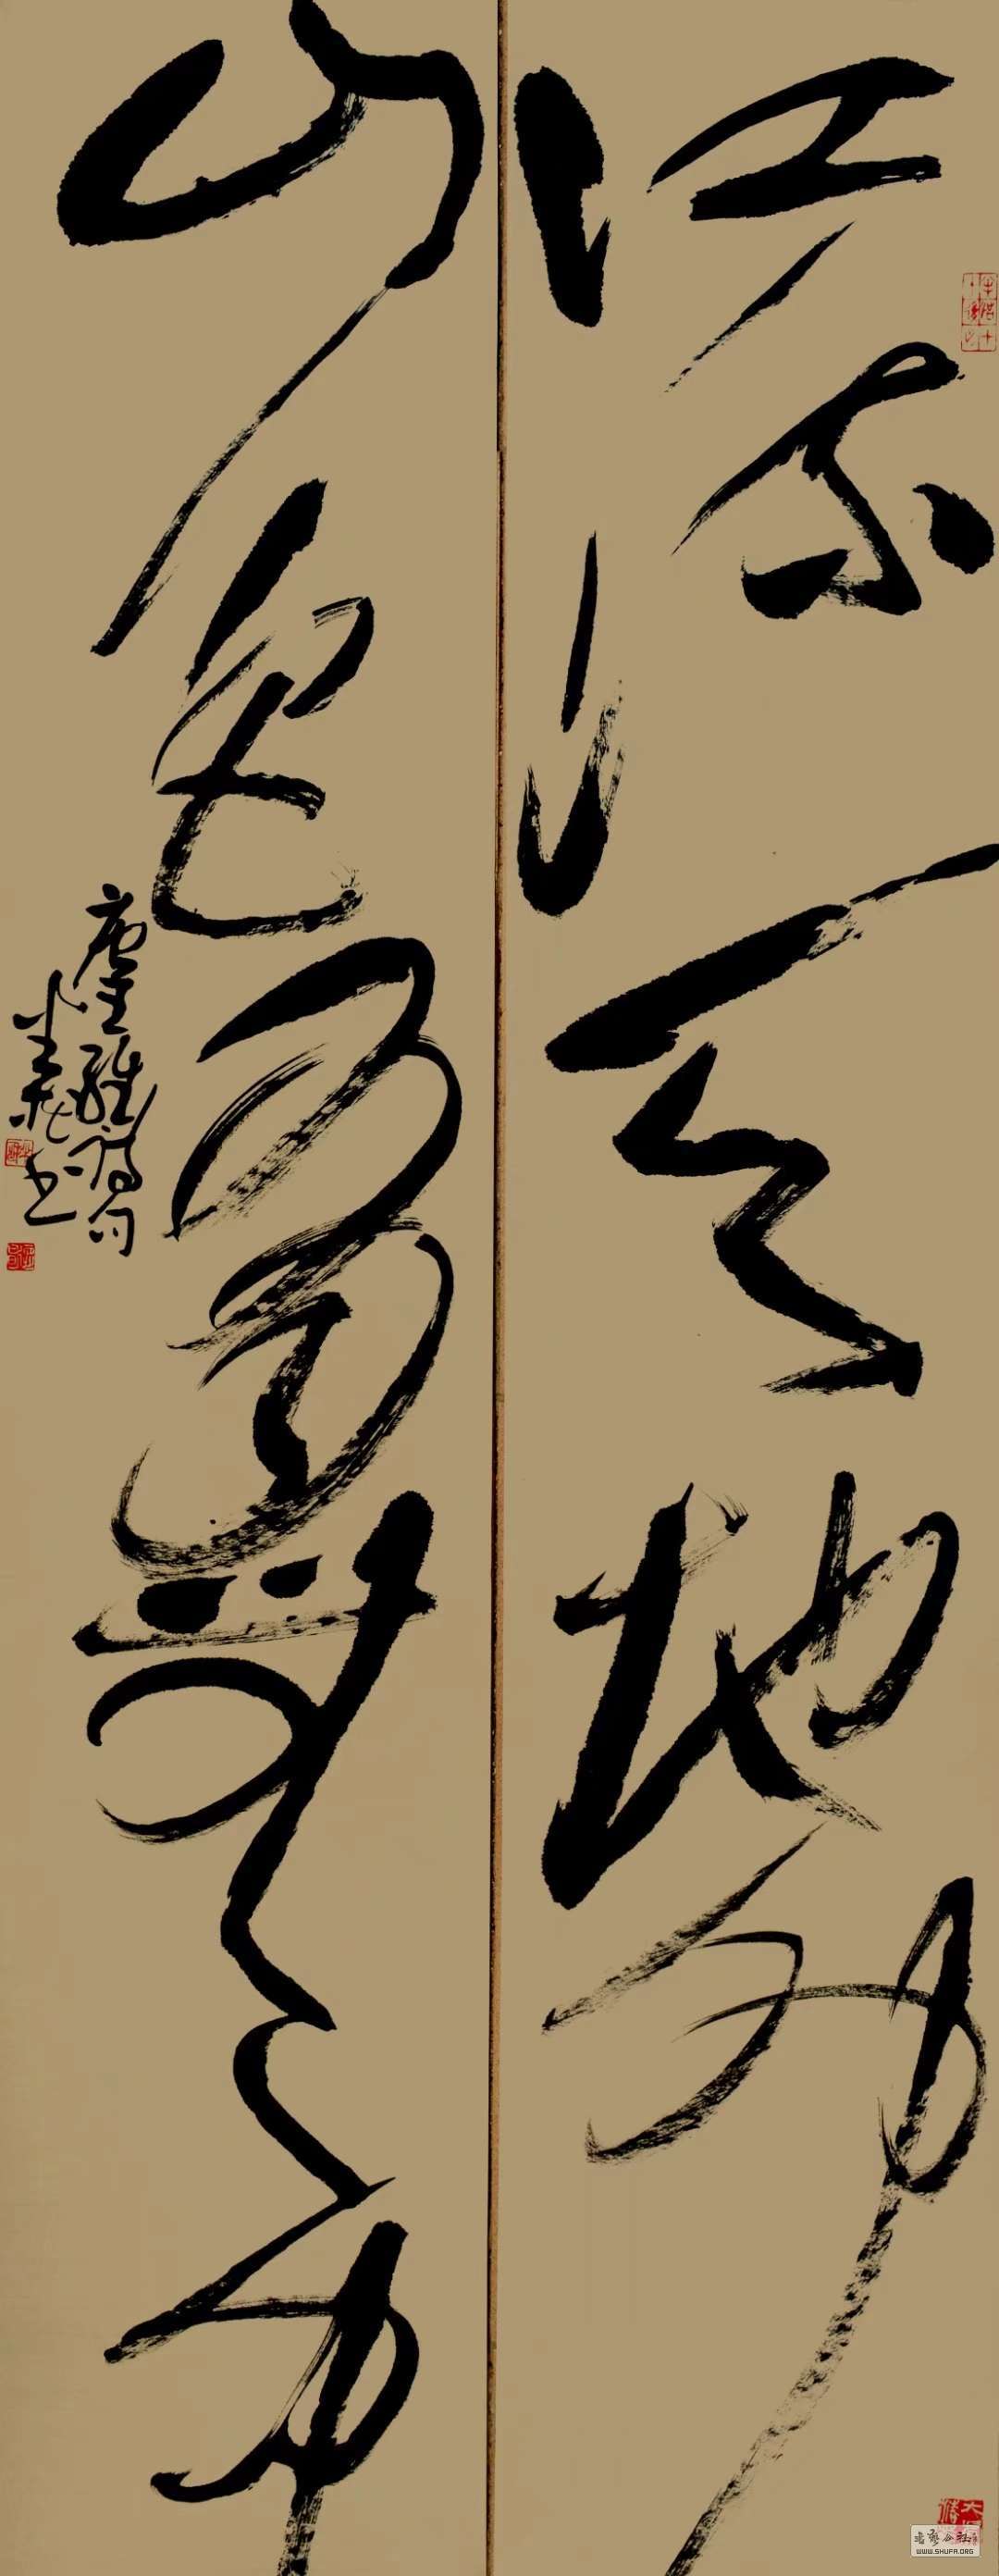 江流天地外
山色有無中
唐王維詩句
书
书艺公社
WWW.SHUFA.ORG